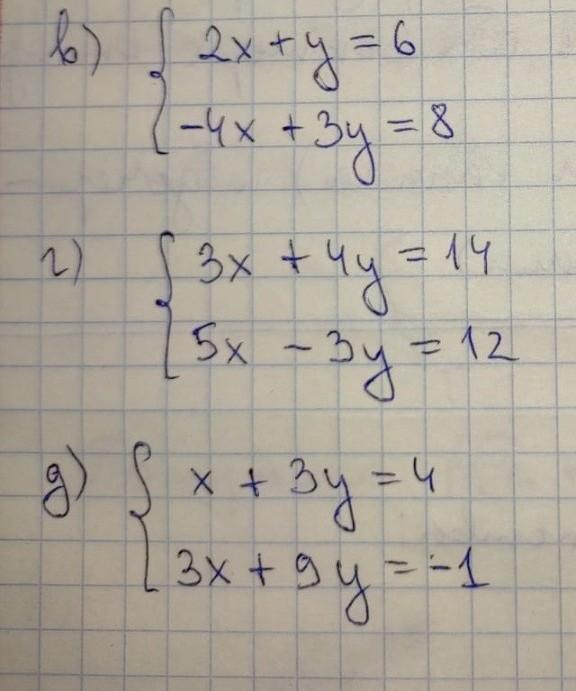 в) 2x + y = 6
-4x + 3y = 8
г) 3x + 4y = 14
5x - 3y = 12
д) x + 3y = 4
3x + 9y = -1